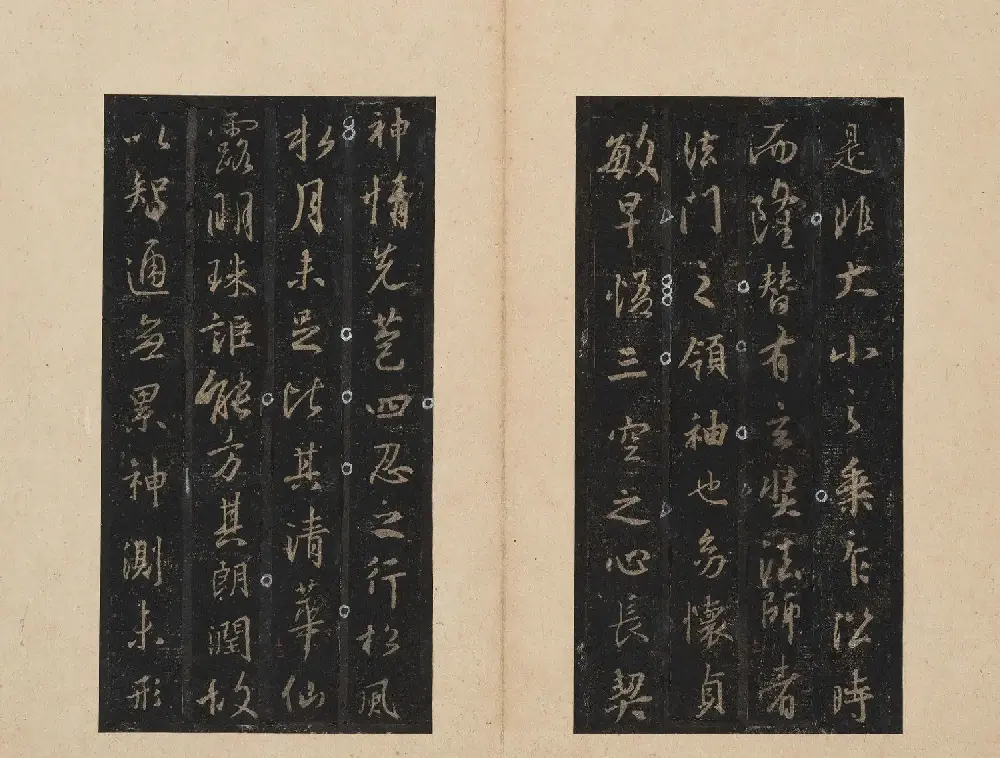 是非大小之乘乍㳂時
而隆替有玄奘法師者
法門之領袖也㓜懷貞
敏早悟三空之心長契
神情先苞四忍之行松風
水月未足比其清華仙
露明珠詎能方其朗潤故
以智通無累神測未形